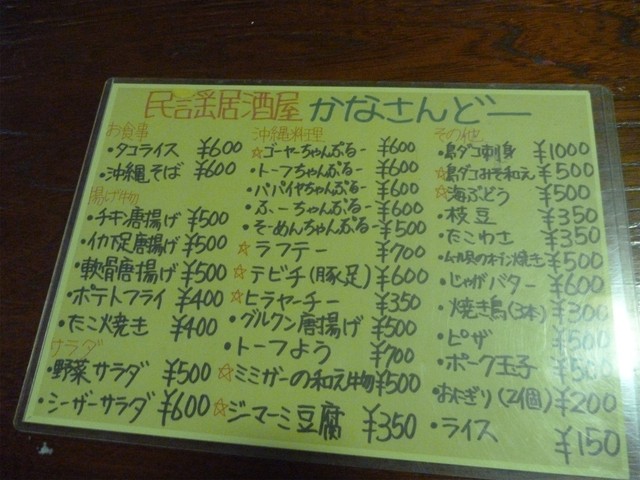 民謡居酒屋 かなさんどー
お食事
・タコライス ¥600
・沖縄そば ¥600
揚げ物
・チキン唐揚げ ¥500
・イカ下足唐揚げ ¥500
・軟骨唐揚げ ¥500
・ポテトフライ ¥400
・たこ焼き ¥400
サラダ
・野菜サラダ ¥500
・シーザーサラダ ¥600
沖縄料理
☆ゴーヤーちゃんぷるー ¥600
・トーフちゃんぷるー ¥600
・パパイヤちゃんぷるー ¥600
・ふーちゃんぷるー ¥600
・そーめんちゃんぷるー ¥500
☆ラフテー ¥700
☆テビチ(豚足) ¥600
☆ヒラヤーチー ¥350
・グルクン唐揚げ ¥500
・トーフよう ¥700
☆ミミガーの和え物 ¥500
☆ジマーミ豆腐 ¥350
その他
・島ダコ刺身 ¥1000
☆島ダコみそ和え ¥500
☆海ぶどう ¥500
・枝豆 ¥350
・たこわさ ¥350
・ムール貝のオーブン焼き ¥500
・じゃがバター ¥600
・焼き鳥(3本) ¥300
・ピザ ¥500
・ポーク玉子 ¥500
・おにぎり(2個) ¥200
・ライス ¥150